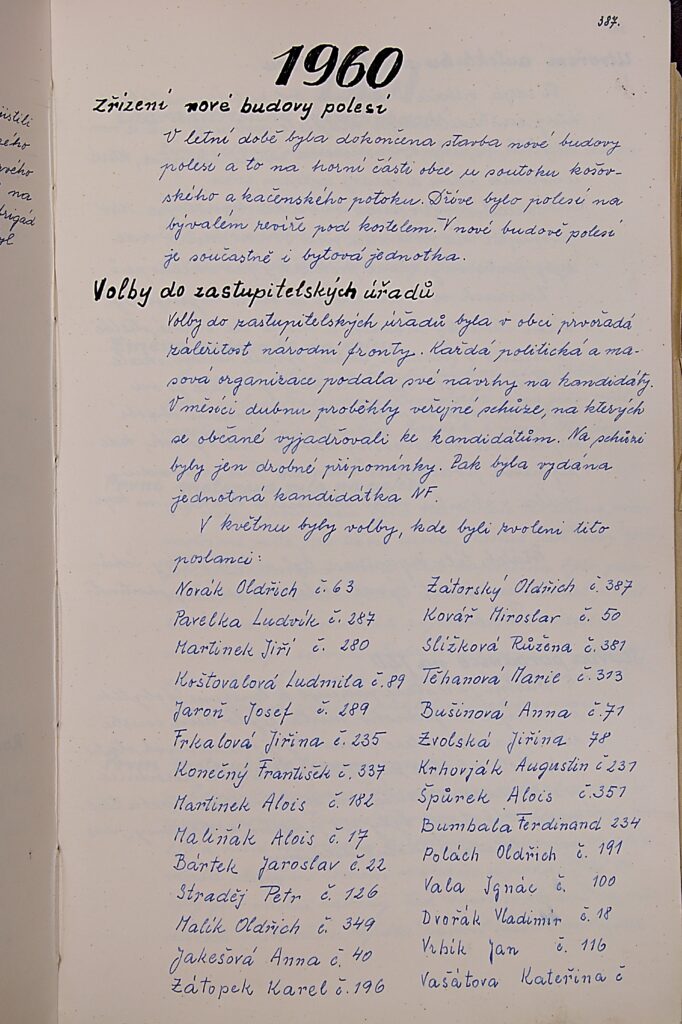 387.
1960
Zřízení nové budovy polesí
V letní době byla dokončena stavba nové budovy
polesí a to na horní části obce u soutoku košov-
ského a kačenského potoku. Dříve bylo polesí na
bývalém revíře pod kostelem. V nové budově polesí
je součastně i bytová jednotka.
Volby do zastupitelských úřadů
Volby do zastupitelských úřadů byla v obci prvořadá
záležitost národní fronty. Každá politická a ma-
sová organizace podala své návrhy na kandidáty.
V měsíci dubnu proběhly veřejné schůze, na kterých
se občané vyjadřovali ke kandidátům. Na schůzi
byly jen drobné připomínky. Pak byla vydána
jednotná kandidátka NF.
V květnu byly volby, kde byli zvoleni tito
poslanci:
Novák Oldřich č. 63
Pavelka Ludvík č. 287
Martinek Jiří č. 280
Koštovalová Ludmila č. 89
Jaroň Josef č. 289
Frkalová Jiřina č. 235
Konečný František č. 337
Martinek Alois č. 182
Maliňák Alois č. 17
Bártek Jaroslav č. 22
Straděj Petr č. 126
Malík Oldřich č. 349
Jakešová Anna č. 40
Zátopek Karel č. 196
Zátorský Oldřich č. 387
Kovář Miroslav č. 50
Slížková Růžena č. 381
Těhanová Marie č. 313
Bušinová Anna č. 71
Zvolská Jiřina 78
Krhovják Augustin č 231
Špůrek Alois č. 351
Bumbala Ferdinand 234
Polách Oldřich č. 191
Vala Ignác č. 100
Dvořák Vladimír č. 18
Vrbík Jan č. 116
Vašátova Kateřina č